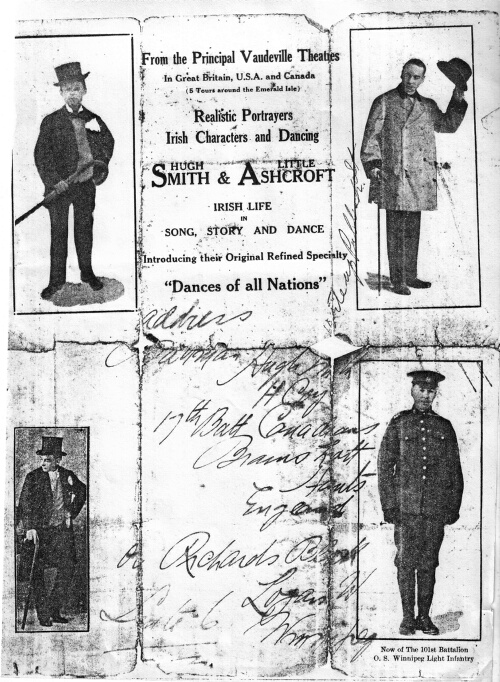 From the Principal Vaudeville Theatres
In Great Britain, U.S.A. and Canada
(5 Tours around the Emerald Isle)
Realistic Portrayers
Irish Characters and Dancing
HUGH LITTLE
SMITH & ASHCROFT
IRISH LIFE
IN
SONG, STORY AND DANCE
Introducing their Original Refined Specialty
"Dances of all Nations"
address
Hugh
17th Batt Canadians
Hants
England
or Richards Block
Logan W
Winnipeg
Now of The 101st Battalion
O. S. Winnipeg Light Infantry